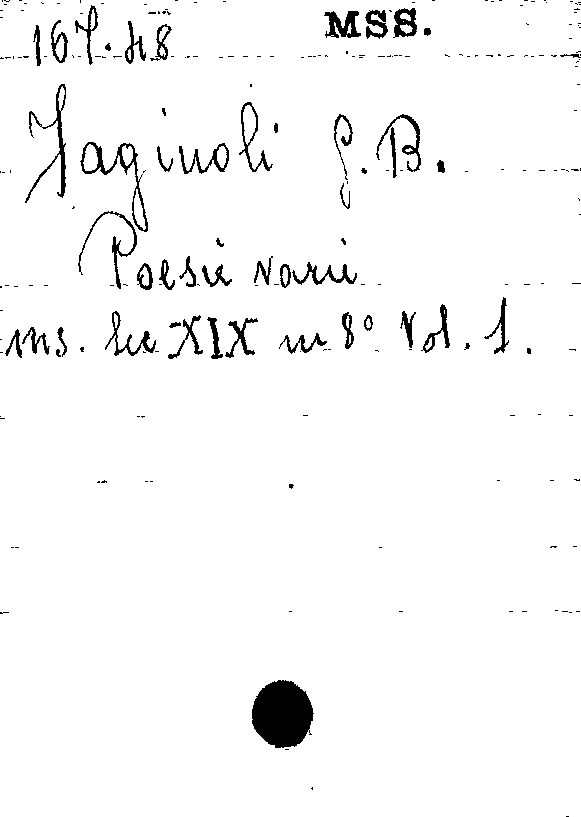 167.48 MSS.
Faginoli G. B.
Poesie varie
ms. Sec XIX in 8° Vol. 1.